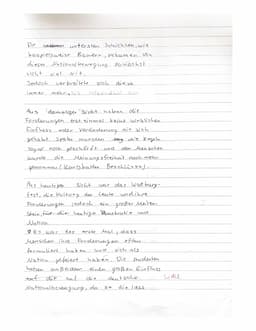 Die untersten Schichten, wie
beispielsweise Bauern, bekamen von
dieser Nationalbewegung zunächst
nicht viel mit.
Jedoch verbreitete sich diese
immer mehr
Aus damaliger Sicht haben die
Forderungen erst einmal keine wirklichen
Einfluss oder Veränderung mit sich
gebracht. Später wurden die Regeln
sogar noch geschärft und den Menschen
wurde die Meinungsfreiheit noch mehr
genommen (Karlsbader Beschlüsse).
Aus heutiger Sicht war das Wartburg-
fest, die Haltung der Leute und ihre
Forderungen jedoch ein großer
Stein für die heutige Demokratie und
Nation.
Es war das erste Mal, dass
Menschen ihre Forderungen offen
formuliert haben und sich als
Nation gefeiert haben. Die Studenten
hatten außerdem einen großen Einfluss
auf die deutsche
Nationalbewegung, da sie die Idee